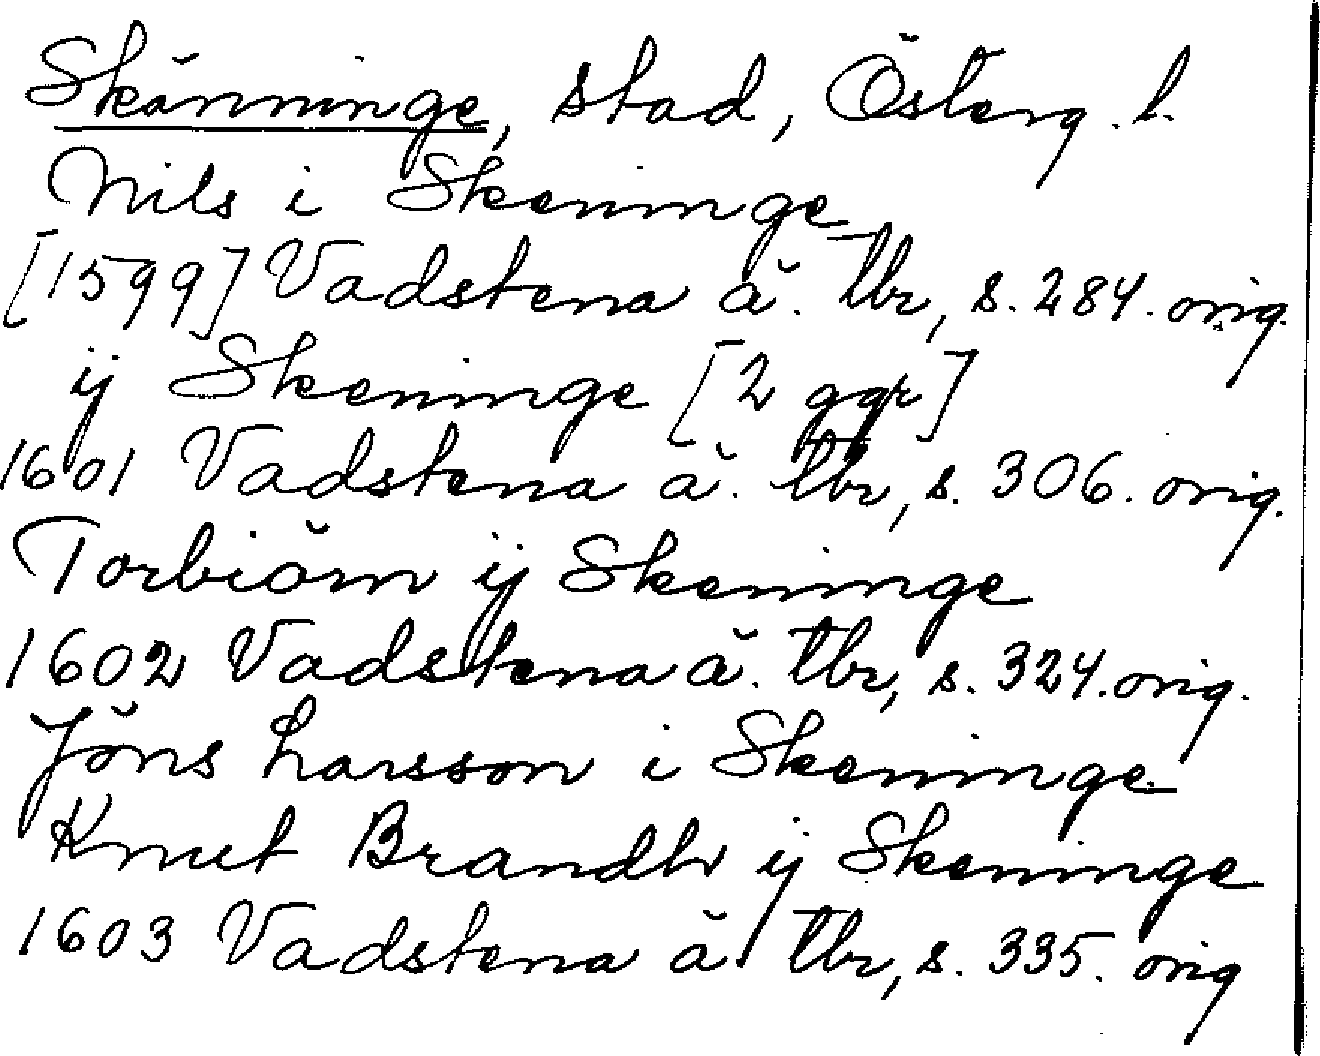 Skänninge, stad, Österg. l.
Nils i Skeninge
[1599] Vadstena ä. tbr, s. 284. orig.
ij Skeninge [2 ggr]
1601 Vadstena ä. tbr, s. 306. orig.
Torbiörn ij Skeninge
1602 Vadstena ä. tbr, s. 324. orig.
Jöns Larsson i Skeninge
Knut Brandh ij Skeninge
1603 Vadstena ä. tbr, s. 335. orig